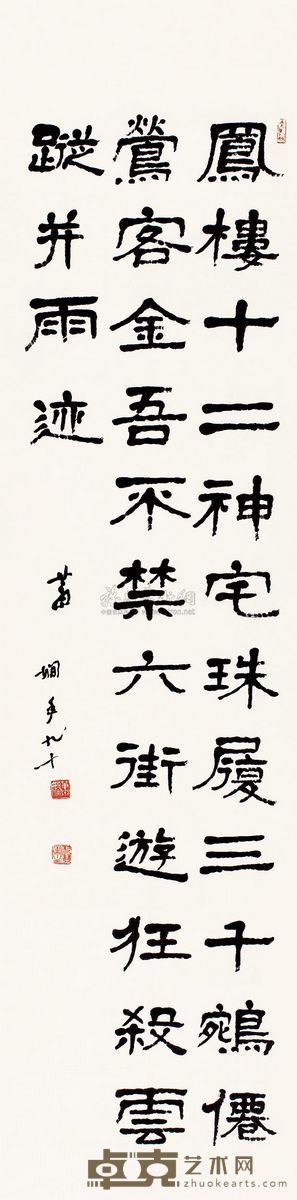 鳳樓十二神宅珠履三千鵷僊
鶯客金吾不禁六街遊狂殺雲
蹤并雨迹
蕭嫻年九十
卓克艺术网
www.zhuokearts.com